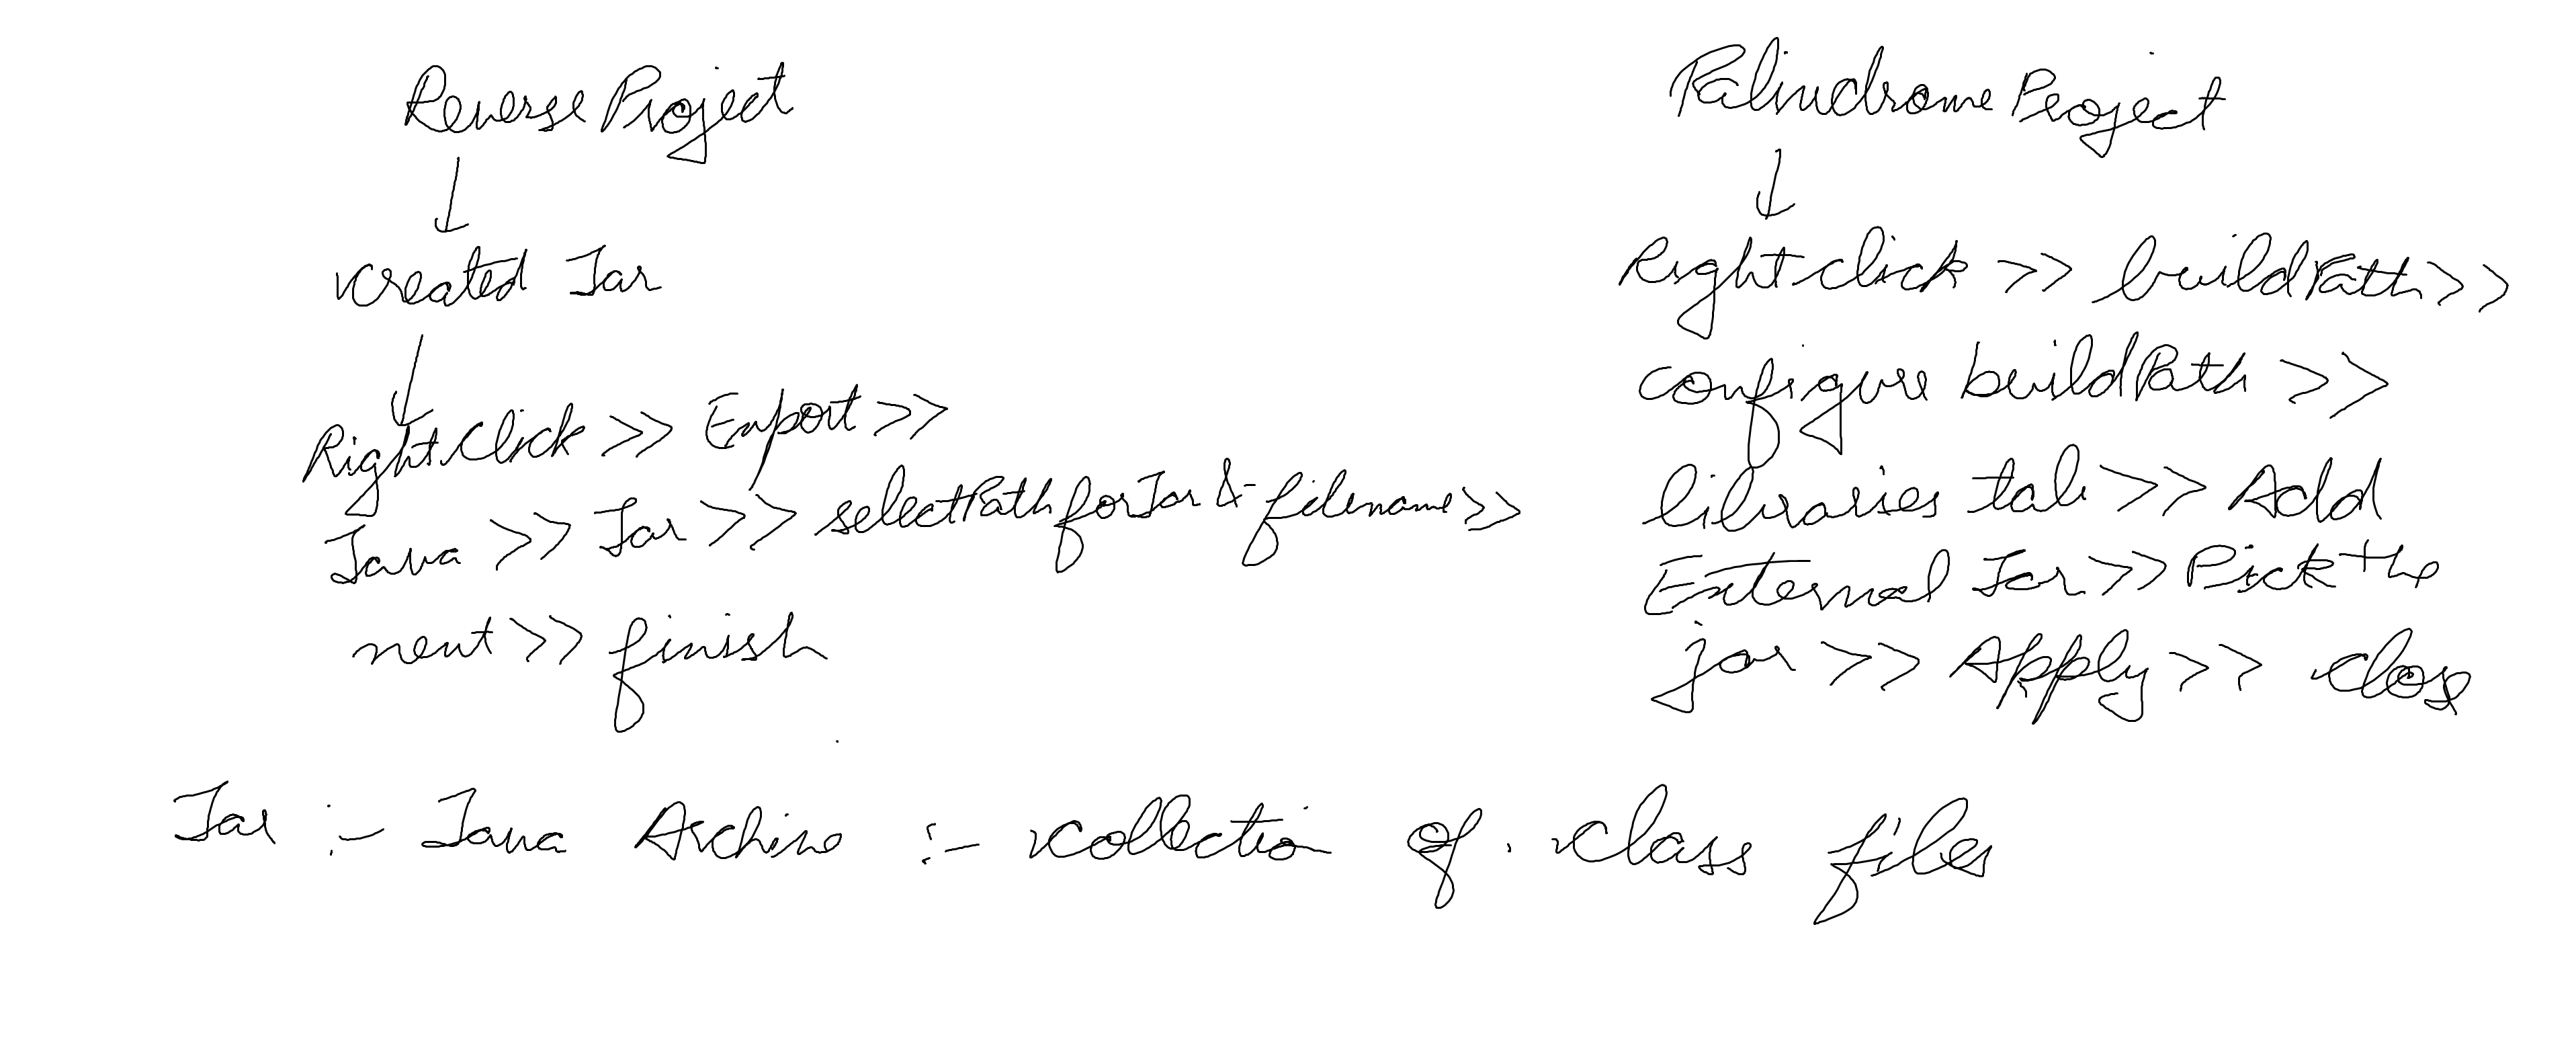 ReverseProject
created Jar
RightClick >> Export >>
Java >> Jar >> selectPath for Jar & filename >>
next >> finish
PalindromeProject
Rightclick >> buildPath >>
configure buildPath >>
libraries tab >> Add
External Jar >> Pick the
jar >> Apply >> close
Jar :- Java Archive :- collection of .class files